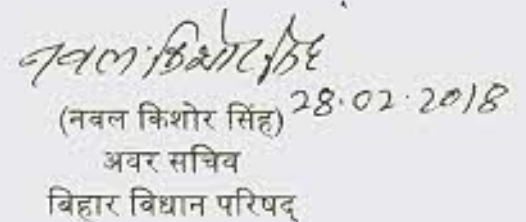 नवल किशोर सिंह
(नवल किशोर सिंह) 28.02.2018
अवर सचिव
बिहार विधान परिषद्